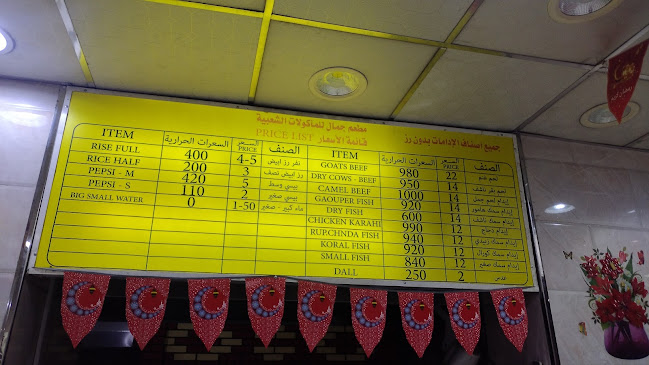 مطعم جمال للماكولات الشعبية
جميع اصناف الادامات بدون رز
PRICE LIST قائمة الأسعار
ITEM السعرات الحرارية السعر PRICE الصنف
RISE FULL 400 4-5 نفر رز ابيض
RICE HALF 200 3 رز ابيض نصف
PEPSI - M 420 5 بيبسي وسط
PEPSI - S 110 2 بيبسي صغير
BIG SMALL WATER 0 1-50 ماء كبير - صغير
ITEM السعرات الحرارية السعر PRICE الصنف
GOATS BEEF 980 22 لحم غنم
DRY COWS - BEEF 950 14 لحم بقر ناشف
CAMEL BEEF 1000 14 إيدام لحم جمل
GAOUPER FISH 920 14 إيدام سمك هامور
DRY FISH 600 14 إيدام سمك ناشف
CHICKEN KARAHI 990 12 إيدام دجاج
RUPCHNDA FISH 940 12 إيدام سمك زبيدي
KORAL FISH 920 12 إيدام سمك كورال
SMALL FISH 840 12 إيدام سمك صغير
DALL 250 2 عدس